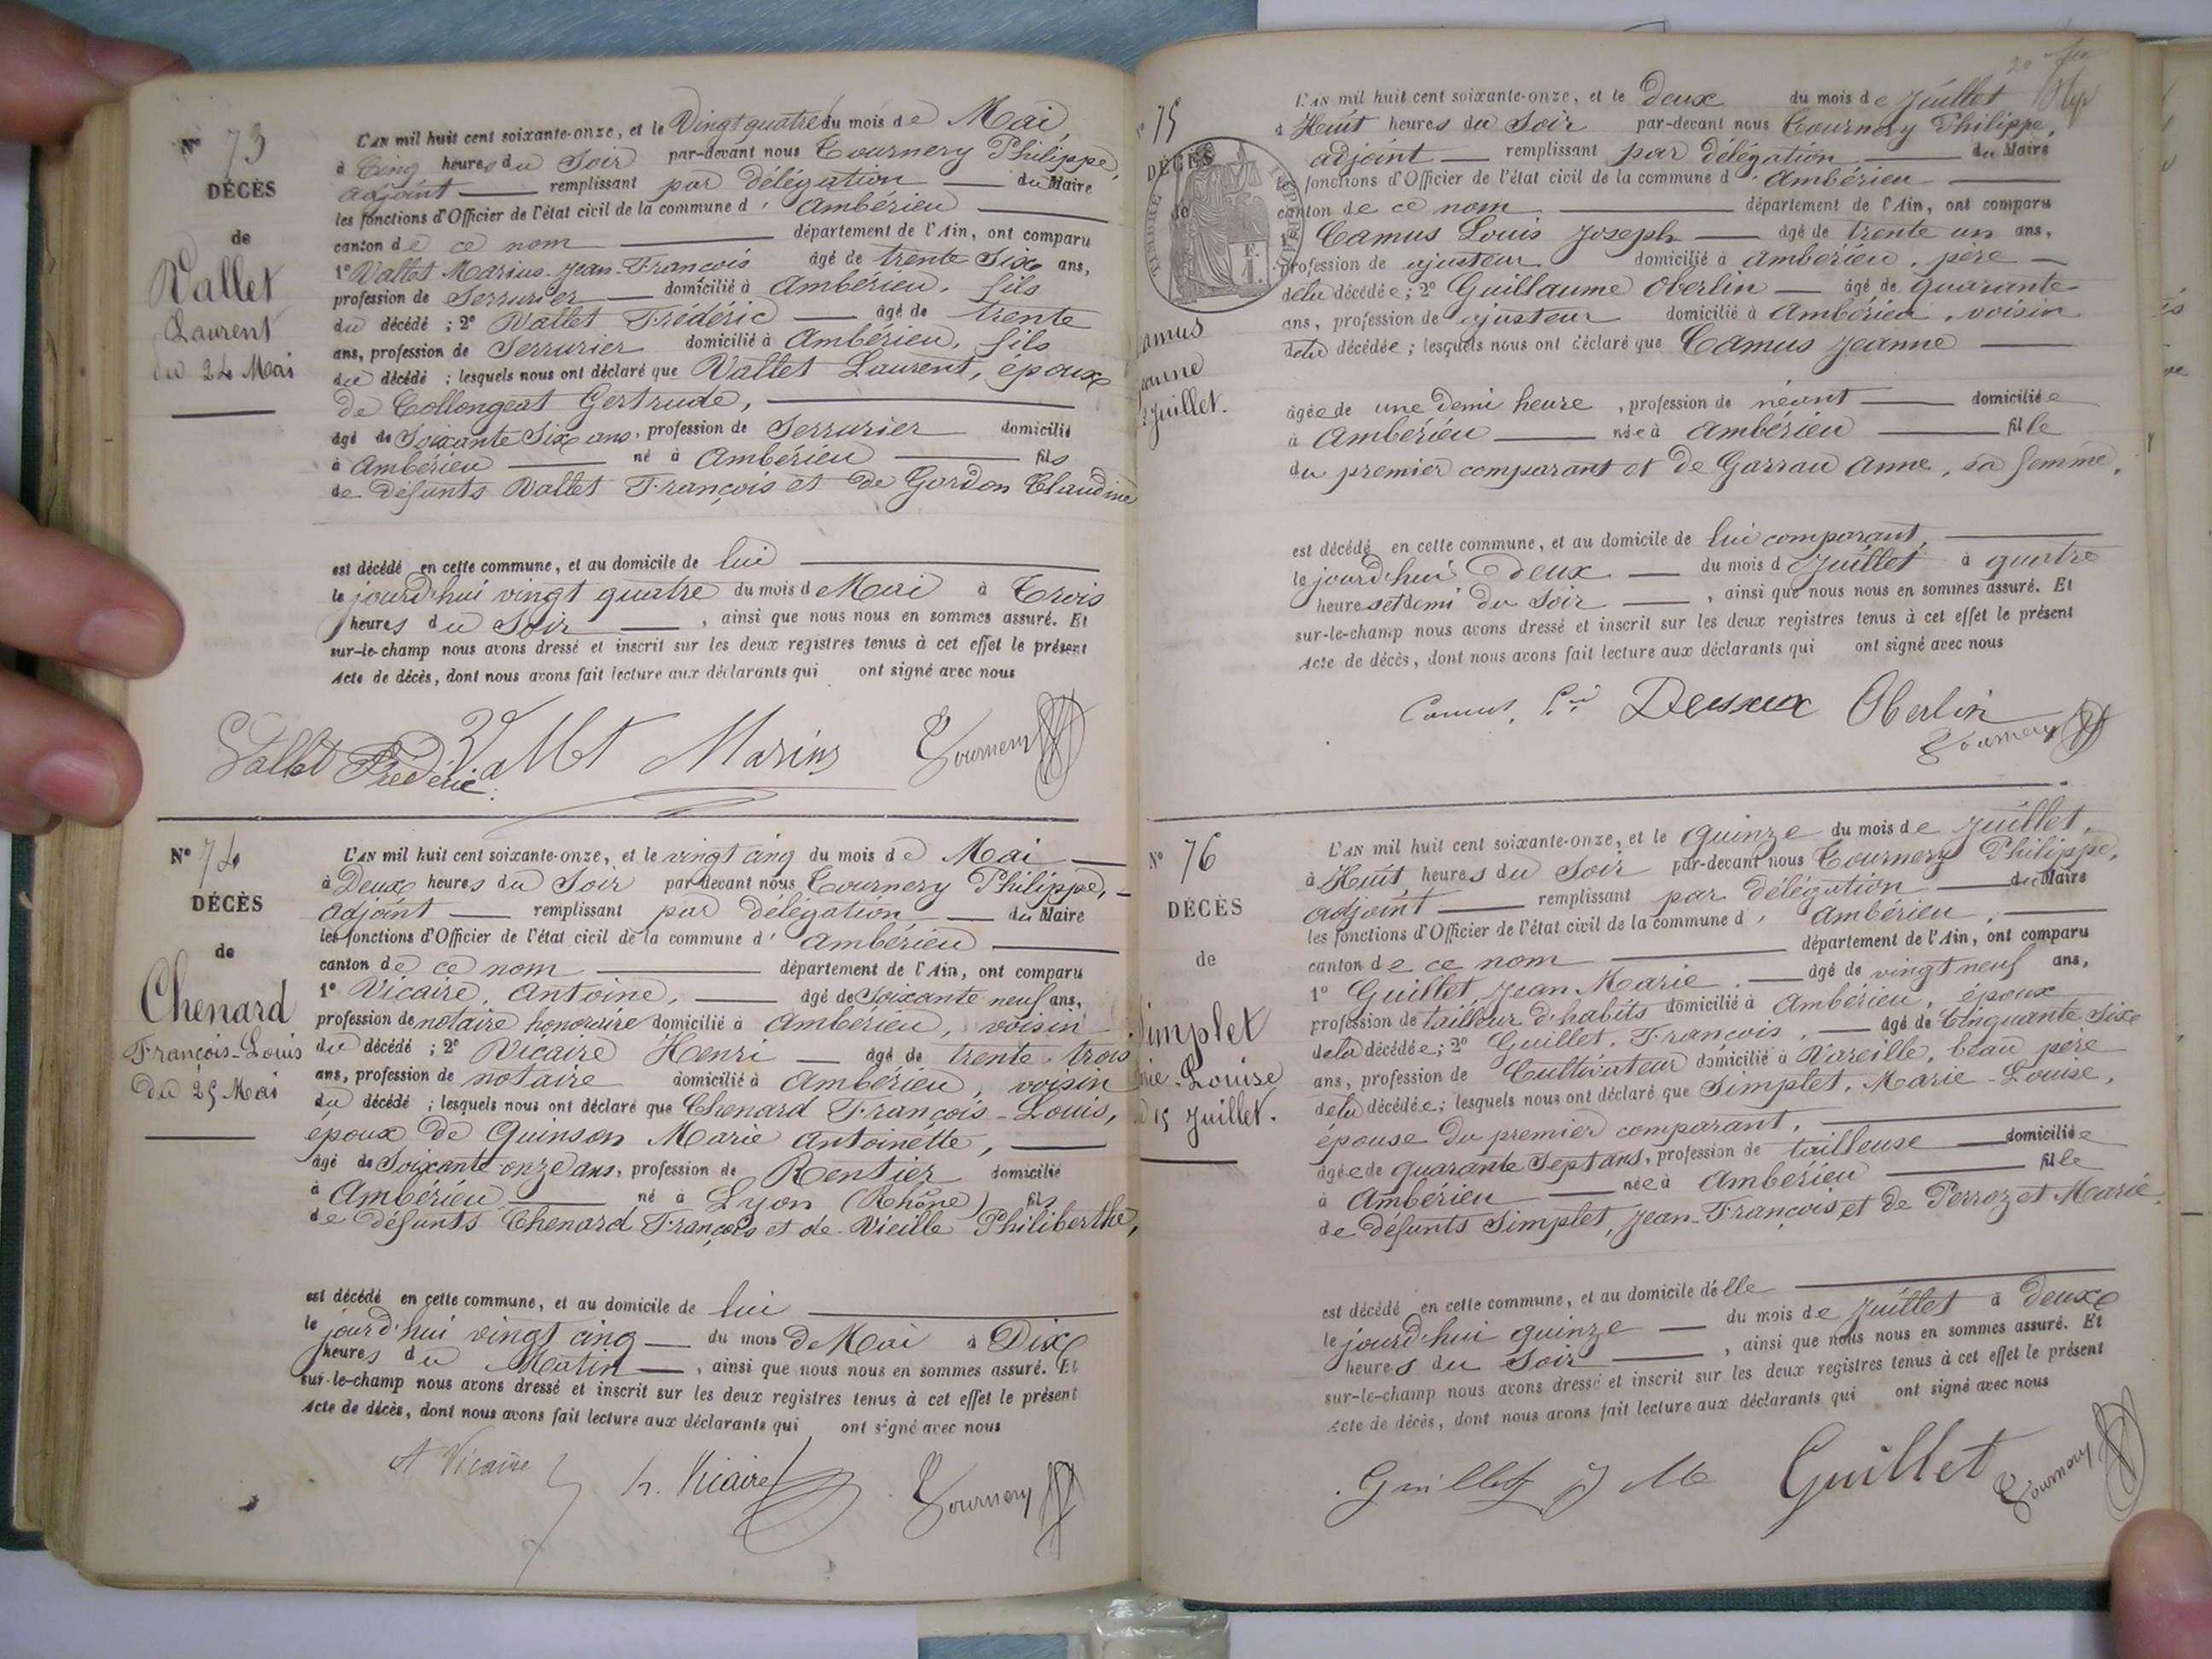 N° 73
DÉCÈS
de
Vallet
Laurent
du 24 Mai
L'AN mil huit cent soixante-onze, et le Vingt quatre du mois de Mai,
à Cinq heures du Soir par-devant nous Tournery Philippe,
adjoint remplissant par délégation du Maire
les fonctions d'Officier de l'état civil de la commune d' Ambérieu
canton de ce nom département de l'Ain, ont comparu
1° Vallet Marius-Jean-François âgé de trente Six ans,
profession de Serrurier domicilié à Ambérieu, fils
du décédé ; 2° Vallet Frédéric âgé de trente
ans, profession de Serrurier domicilié à Ambérieu, fils
du décédé ; lesquels nous ont déclaré que Vallet Laurent, époux
de Collongeat Gertrude,
âgé de Soixante Six ans, profession de Serrurier domicilié
à Ambérieu né à Ambérieu fils
de défunts Vallet François et de Gordon Claudine
est décédé en cette commune, et au domicile de lui
le jourd'hui vingt quatre du mois de Mai à Trois
heures du Soir , ainsi que nous nous en sommes assuré. Et
sur-le-champ nous avons dressé et inscrit sur les deux registres tenus à cet effet le présent
Acte de décès, dont nous avons fait lecture aux déclarants qui ont signé avec nous
Vallet Frédéric Vallet Marius Tournery
N° 74
DÉCÈS
de
Chenard
François-Louis
du 25 Mai
L'AN mil huit cent soixante-onze, et le vingt cinq du mois de Mai
à Deux heures du Soir par-devant nous Tournery Philippe,
adjoint remplissant par délégation du Maire
les fonctions d'Officier de l'état civil de la commune d' Ambérieu
canton de ce nom département de l'Ain, ont comparu
1° Vicaire, Antoine, âgé de Soixante neuf ans,
profession de notaire honoraire domicilié à Ambérieu, voisin
du décédé ; 2° Vicaire Henri âgé de trente trois
ans, profession de notaire domicilié à Ambérieu, voisin
du décédé ; lesquels nous ont déclaré que Chenard François-Louis,
époux de Quinson Marie Antoinette,
âgé de Soixante onze ans, profession de Rentier domicilié
à Ambérieu né à Lyon (Rhône) fils
de défunts Chenard François et de Vieille Philiberthe,
est décédé en cette commune, et au domicile de lui
le jourd'hui vingt cinq du mois de Mai à Dix
heures du Matin , ainsi que nous nous en sommes assuré. Et
sur-le-champ nous avons dressé et inscrit sur les deux registres tenus à cet effet le présent
Acte de décès, dont nous avons fait lecture aux déclarants qui ont signé avec nous
A Vicaire h. Vicaire Tournery
75
DÉCÈS
de
amus
anne
2 Juillet.
L'AN mil huit cent soixante-onze, et le Deux du mois de Juillet
à Huit heures du Soir par-devant nous Tournery Philippe,
adjoint remplissant par délégation du Maire
les fonctions d'Officier de l'état civil de la commune d' Ambérieu
canton de ce nom département de l'Ain, ont comparu
1° Camus Louis Joseph âgé de trente un ans,
profession de ajusteur domicilié à Ambérieu, père
de la décédée ; 2° Guillaume Oberlin âgé de quarante
ans, profession de ajusteur domicilié à Ambérieu, voisin
de la décédée ; lesquels nous ont déclaré que Camus Jeanne
âgée de une demi heure , profession de néant domiciliée
à Ambérieu née à Ambérieu fille
du premier comparant et de Garrau Anne, sa femme,
est décédé en cette commune, et au domicile de lui comparant,
le jourd'hui Deux du mois d Juillet à quatre
heures et demi du Soir , ainsi que nous nous en sommes assuré. Et
sur-le-champ nous avons dressé et inscrit sur les deux registres tenus à cet effet le présent
Acte de décès, dont nous avons fait lecture aux déclarants qui ont signé avec nous
Camus Oberlin Tournery
N° 76
DÉCÈS
de
Simplet
rie-Louise
15 Juillet.
L'AN mil huit cent soixante-onze, et le Quinze du mois de Juillet,
à Huit heures du Soir par-devant nous Tournery Philippe,
adjoint remplissant par délégation du Maire
les fonctions d'Officier de l'état civil de la commune d' Ambérieu,
canton de ce nom département de l'Ain, ont comparu
1° Guillet, Jean Marie, âgé de vingt neuf ans,
profession de tailleur d'habits domicilié à Ambérieu, époux
de la décédée ; 2° Guillet, François, âgé de Cinquante Six
ans, profession de Cultivateur domicilié à Vareille, beau père
de la décédée ; lesquels nous ont déclaré que Simplet, Marie-Louise,
épouse du premier comparant,
âgée de quarante Sept ans, profession de tailleuse domiciliée
à Ambérieu née à Ambérieu fille
de défunts Simplet, Jean-François et de Perrozet Marie,
est décédé en cette commune, et au domicile d'elle
le jourd'hui quinze du mois de Juillet à deux
heures du Soir , ainsi que nous nous en sommes assuré. Et
sur-le-champ nous avons dressé et inscrit sur les deux registres tenus à cet effet le présent
Acte de décès, dont nous avons fait lecture aux déclarants qui ont signé avec nous
Guillet J M Guillet Tournery